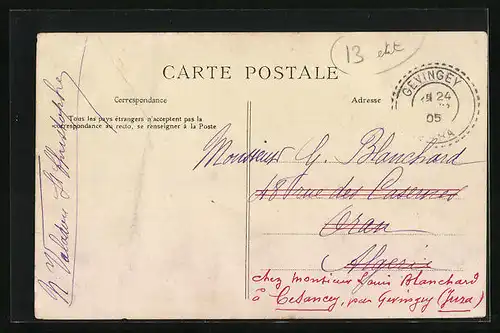 13
CARTE POSTALE
Correspondance
Adresse
Tous les pays étrangers n'acceptent pas la
correspondance au recto, se renseigner à la Poste
GEVINGEY
24
05
Monsieur G. Blanchard
18 rue des Casernes
Oran
Algérie
chez monsieur Louis Blanchard
à Cesancey, par Gevingey (Jura)